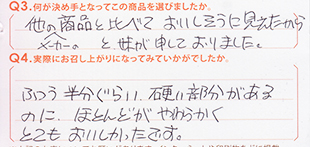 Q3.何が決め手となってこの商品を選びましたか。
他の商品と比べておいしそうに見えたから
メーカーの
と妹が申しておりました。
Q4.実際にお召し上がりになってみていかがでしたか。
ふつう半分ぐらい硬い部分がある
のに、ほとんどがやわらかく
とてもおいしかったです。